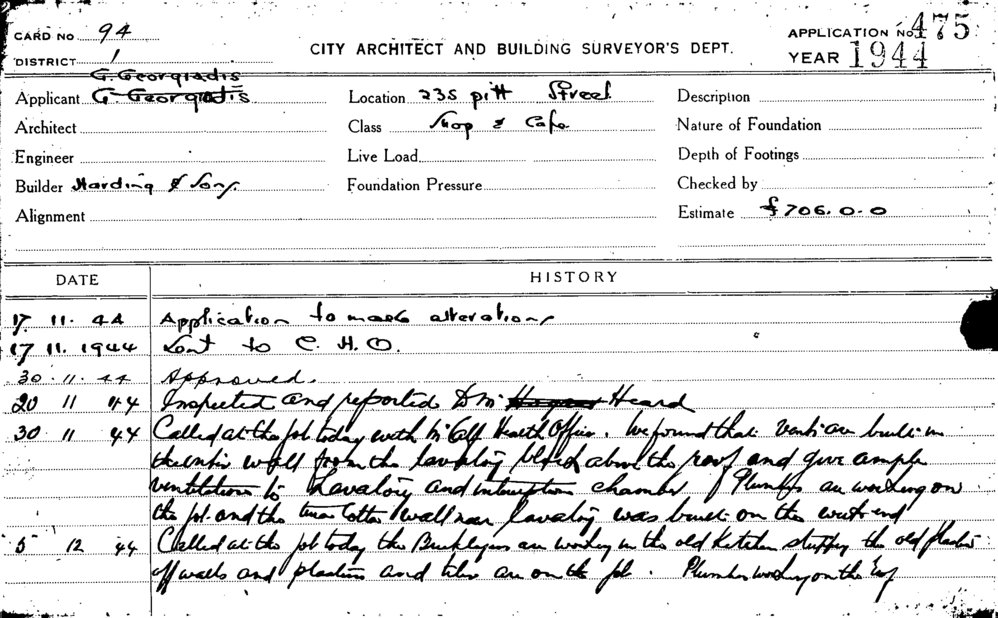 CARD No 94
CITY ARCHITECT AND BUILDING SURVEYOR'S DEPT.
APPLICATION No. 475
DISTRICT 1
YEAR 1944
G. Georgiadis
Applicant G. Georgiadis
Location 235 pitt Street
Description
Architect
Class Shop & Cafe
Nature of Foundation
Engineer
Live Load
Depth of Footings
Builder Harding & Sons.
Foundation Pressure
Checked by
Alignment
Estimate £706.0.0
DATE HISTORY
17. 11. 44 Application to make alterations
17 11. 1944 Sent to C. H. O.
30. 11. 44 Approved.
20 11 44 Inspected and reported to Mr Heard
30 11 44 Called at the job today with Mr Health Officer. We found that vents are built in
the wall from the lavatory block above the roof and give ample
ventilation to Lavatory and interception chamber Plumbers are working on
the job and the terra cotta wall near lavatory was built on the west end
5 12 44 Called at the job today the Bricklayers are working in the old Kitchen the old plaster
off walls and plasters and tiles are on the job. Plumber working on the